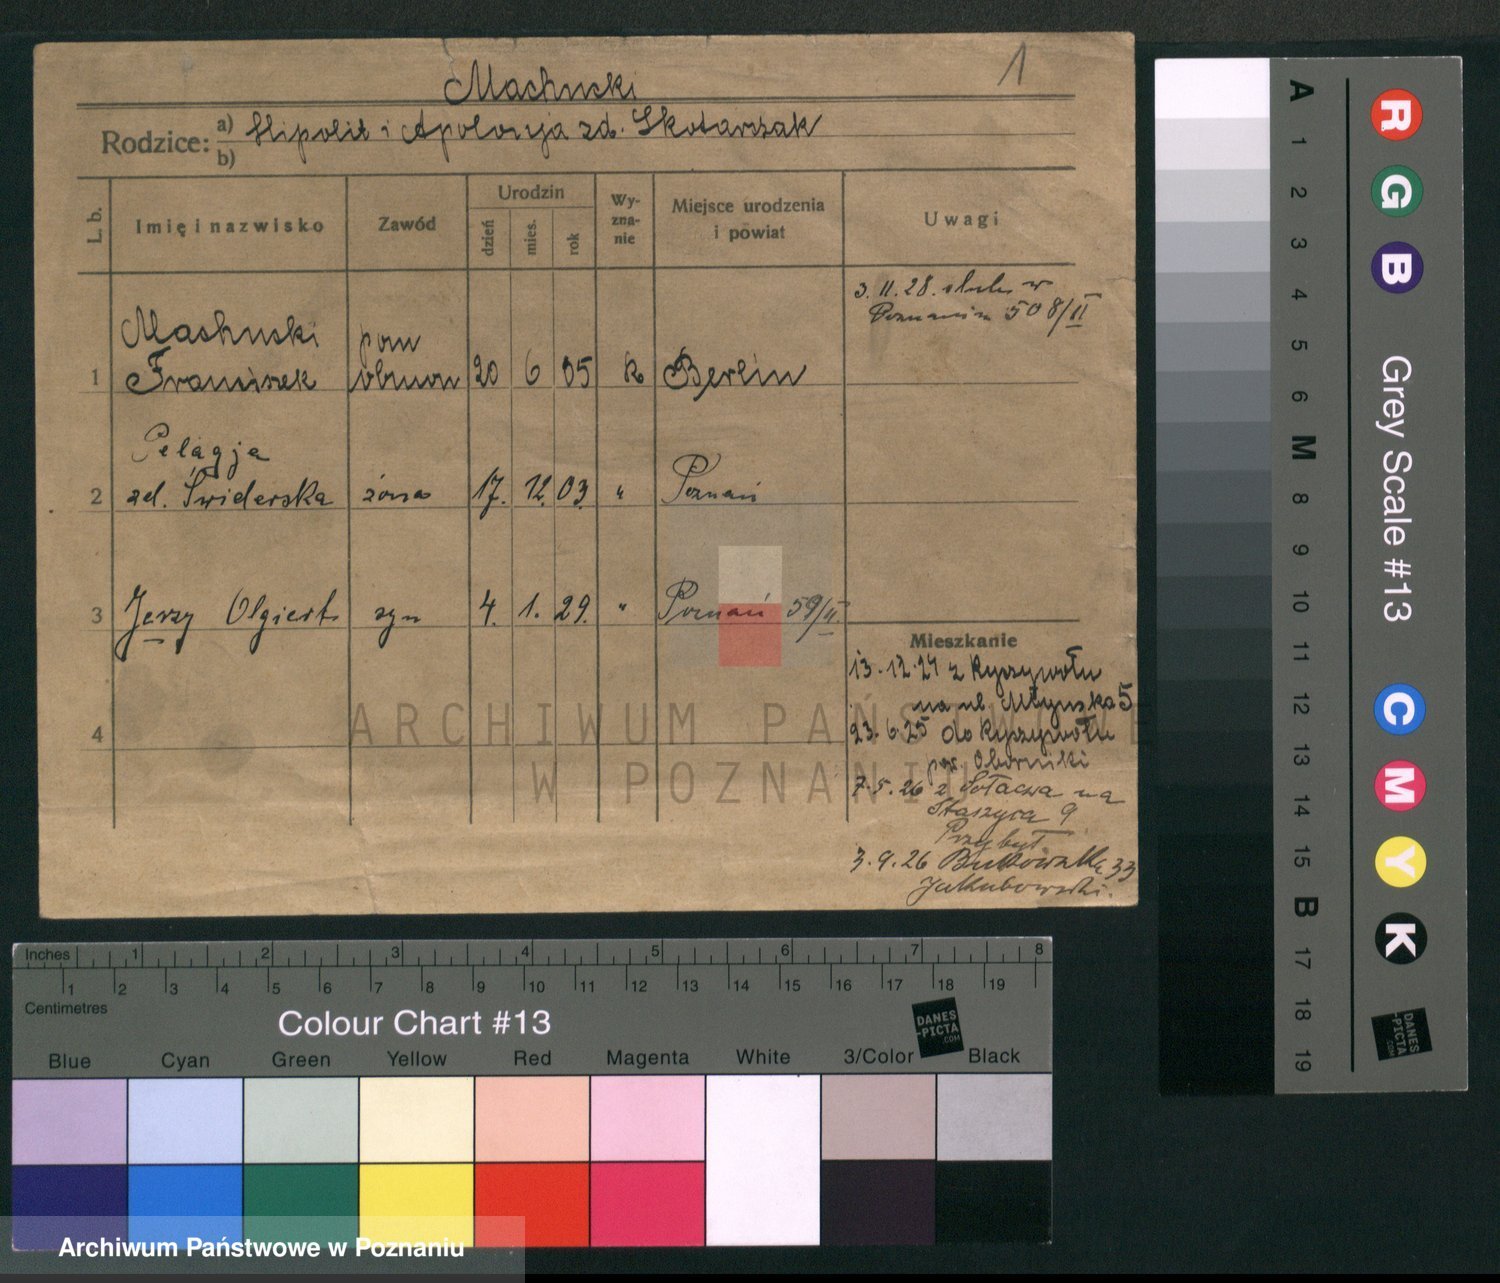 1
Machucki
Rodzice: a) Hipolit i Apolonja zd. Skotarczak
b)
L. b. Imię i nazwisko Zawód Urodzin dzień mies. rok Wy-zna-nie Miejsce urodzenia i powiat Uwagi
3. 11. 28. ślub w
Poznaniu 508/II
Machucki pom
1 Franciszek 20 6 05 k Berlin
Pelagja
2 zd. Świderska żona 17. 12. 03. " Poznań
3 Jerzy Olgiert syn 4. 1. 29. " Poznań 59/II.
4
Mieszkanie
13.12.24 z Ryczywołu
na ul. Młyńska 5
23.6.25 do Ryczywołu
pow. Oborniki
7.5.26 z Sołacza na
Staszyca 9
Przybył
3.9.26 33
Jakubowski.
ARCHIWUM PAŃSTWOWE
W POZNANIU
A 1 2 3 4 5 6 M 8 9 10 11 12 13 14 15 B 17 18 19
R G B
Grey Scale #13
C M Y K
DANES
-PICTA
.COM
Inches 1 2 3 4 5 6 7 8
1 2 3 4 5 6 7 8 9 10 11 12 13 14 15 16 17 18 19
Centimetres
Colour Chart #13
DANES
-PICTA
.COM
Blue Cyan Green Yellow Red Magenta White 3/Color Black
Archiwum Państwowe w Poznaniu